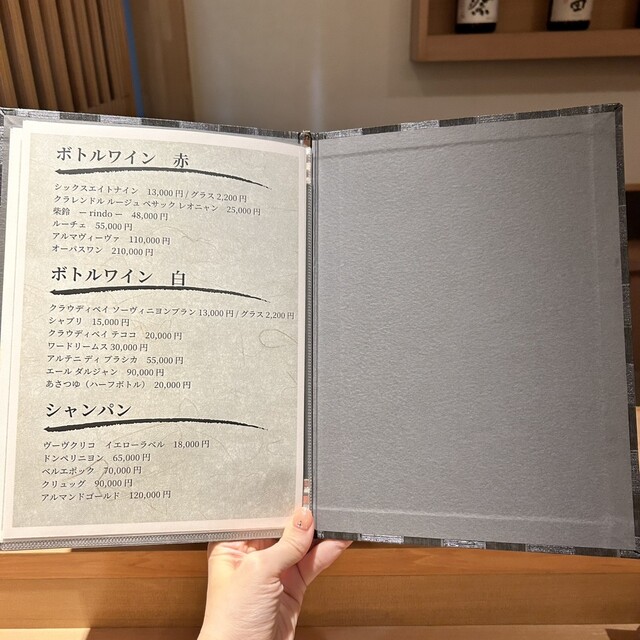 ボトルワイン 赤
シックスエイトナイン 13,000円 / グラス 2,200円
クラレンドル ルージュ ペサック レオニャン 25,000円
紫鈴 ー rindo ー 48,000円
ルーチェ 55,000円
アルマヴィーヴァ 110,000円
オーパスワン 210,000円
ボトルワイン 白
クラウディベイ ソーヴィニヨンブラン 13,000円 / グラス 2,200円
シャブリ 15,000円
クラウディベイ テココ 20,000円
ワードリームス 30,000円
アルテニ ディ ブラシカ 55,000円
エール ダルジャン 90,000円
あさつゆ（ハーフボトル） 20,000円
シャンパン
ヴーヴクリコ イエローラベル 18,000円
ドンペリニヨン 65,000円
ベルエポック 70,000円
クリュッグ 90,000円
アルマンドゴールド 120,000円